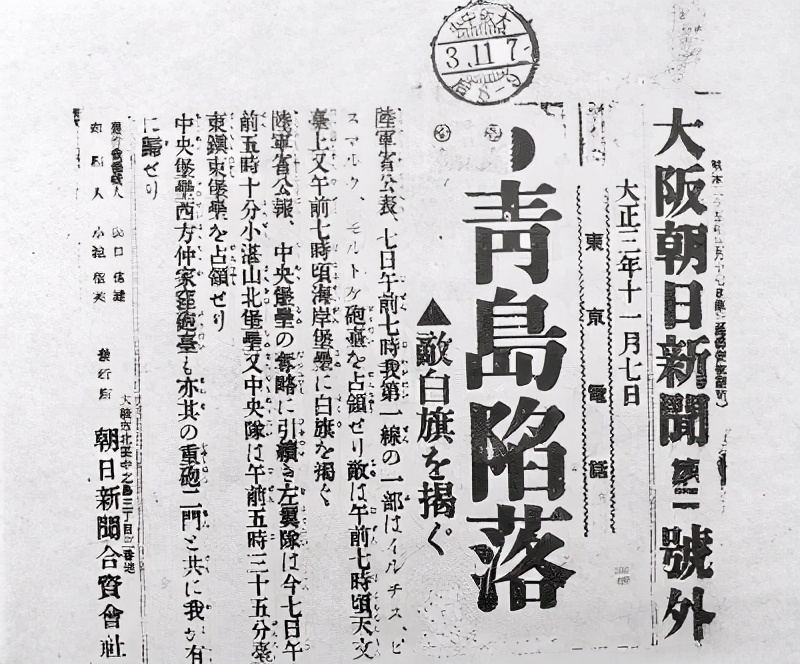 大阪朝日新聞 第二 號外
大正三年十一月七日
東京電話
3.11 7
8-9
●青島陷落
▲敵白旗を揭ぐ
陸軍省公表、七日午前七時我第一線の一部はイルチス、ビ
スマルク、モルトケ砲臺を占領せり敵は午前七時頃天文
臺上又午前七時頃海岸堡壘に白旗を揭ぐ
陸軍省公報、中央堡壘の奪略に引續き左翼隊は今七日午
前五時十分小湛山北堡壘又中央隊は午前五時三十五分臺
東鎭東堡壘を占領せり
中央堡壘西方仲家窪砲臺も亦其の重砲二門と共に我が有
に歸せり
印刷人 小池信美
發行所
大阪市北區中之島三丁目三番地
朝日新聞合資會社